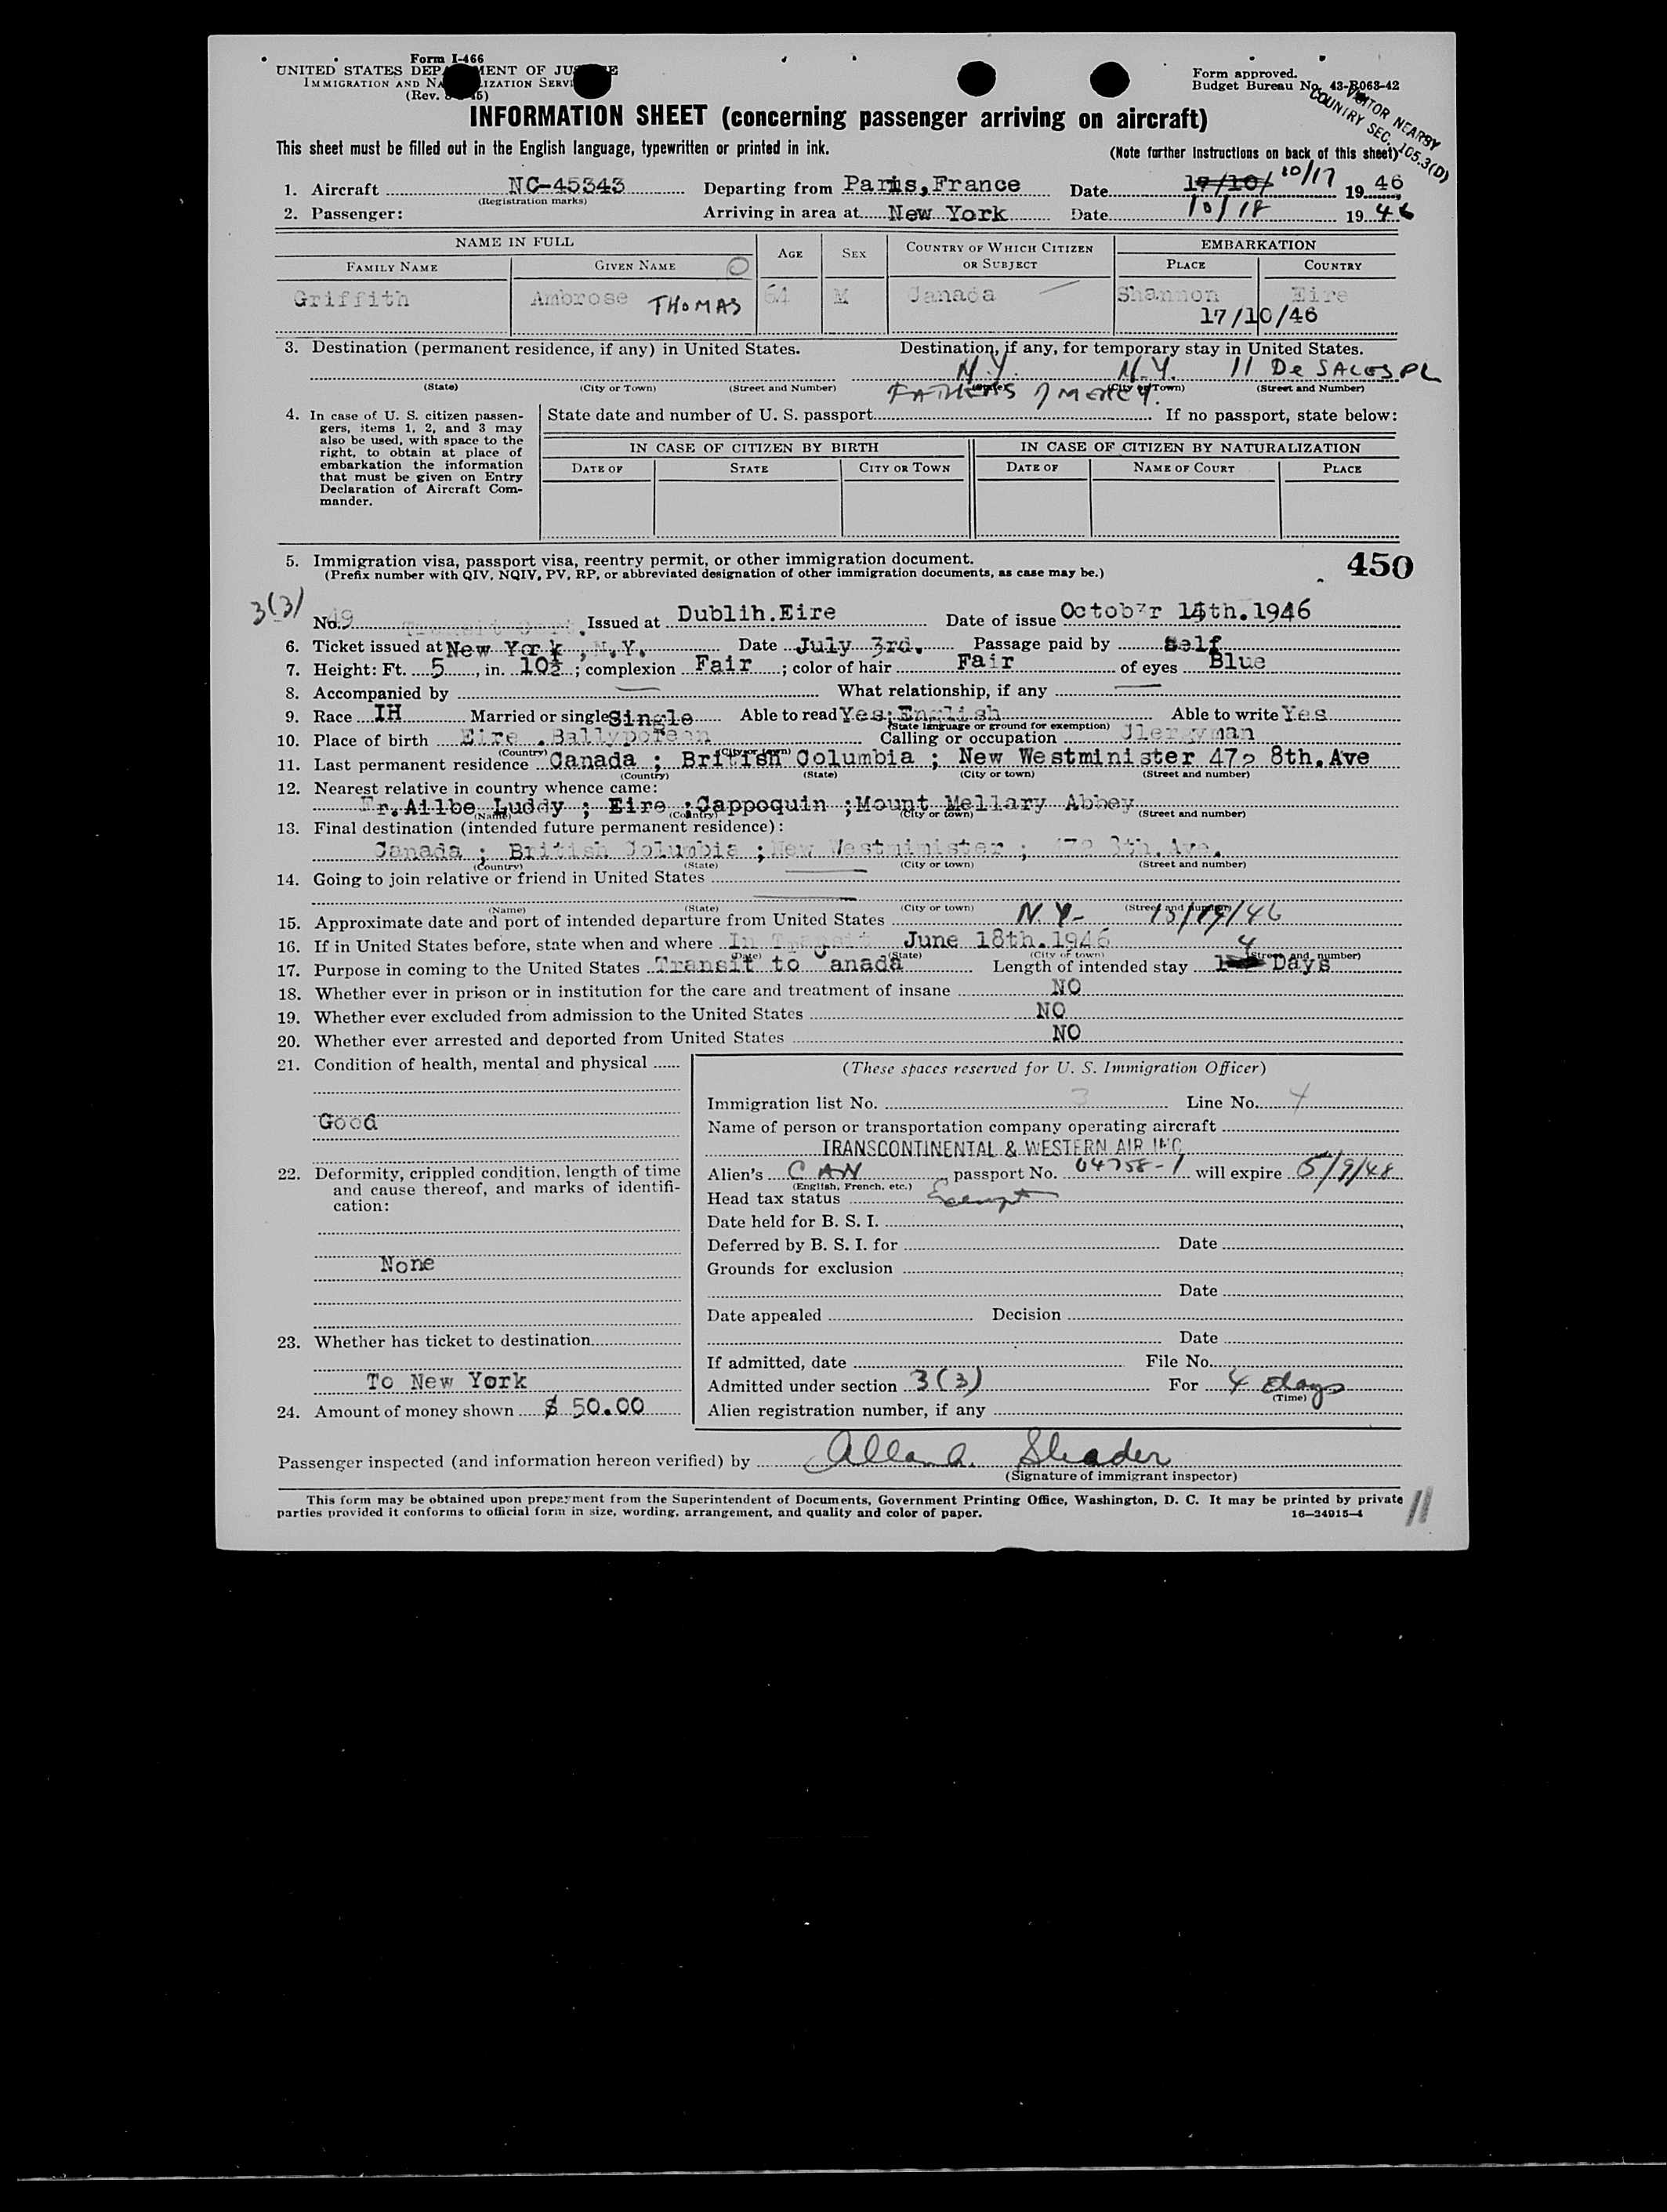 Form I-466
UNITED STATES DEP MENT OF JU
IMMIGRATION AND NA IZATION SERVI
(Rev.
Form approved.
Budget Bureau No. 43-R063-42
VISITOR NEARBY
COUNTRY SEC. 105.3(D)
INFORMATION SHEET (concerning passenger arriving on aircraft)
This sheet must be filled out in the English language, typewritten or printed in ink.
(Note further instructions on back of this sheet)
1. Aircraft NC-45343 Departing from Paris,France Date 17/10/ 10/17 19 46
(Registration marks)
2. Passenger: Arriving in area at New York Date 10/18 19 46
NAME IN FULL AGE SEX COUNTRY OF WHICH CITIZEN OR SUBJECT EMBARKATION
FAMILY NAME GIVEN NAME PLACE COUNTRY
Griffith Ambrose THOMAS 64 M Canada Shannon Eire
17/10/46
3. Destination (permanent residence, if any) in United States. Destination, if any, for temporary stay in United States.
N.Y. N.Y. 11 De SALES PL
(State) (City or Town) (Street and Number) (State) (City or Town) (Street and Number)
FATHERS OF MERCY.
4. In case of U. S. citizen passen-
gers, items 1, 2, and 3 may
also be used, with space to the
right, to obtain at place of
embarkation the information
that must be given on Entry
Declaration of Aircraft Com-
mander.
State date and number of U. S. passport If no passport, state below:
IN CASE OF CITIZEN BY BIRTH IN CASE OF CITIZEN BY NATURALIZATION
DATE OF STATE CITY OR TOWN DATE OF NAME OF COURT PLACE
5. Immigration visa, passport visa, reentry permit, or other immigration document.
(Prefix number with QIV, NQIV, PV, RP, or abbreviated designation of other immigration documents, as case may be.)
450
3(3)
No. 49 Transit Cert. Issued at Dublih.Eire Date of issue October 15th.1946
6. Ticket issued at New York , N.Y. Date July 3rd. Passage paid by Self
7. Height: Ft. 5, in. 10½; complexion Fair; color of hair Fair of eyes Blue
8. Accompanied by — What relationship, if any —
9. Race IH Married or single Single Able to read Yes; English Able to write Yes
(State language or ground for exemption)
10. Place of birth Eire . Ballyporeen Calling or occupation Clergyman
(Country) (City or town)
11. Last permanent residence Canada ; British Columbia ; New Westminister 472 8th.Ave
(Country) (State) (City or town) (Street and number)
12. Nearest relative in country whence came:
Fr.Ailbe Luddy ; Eire ;Cappoquin ;Mount Mellary Abbey
(Name) (Country) (City or town) (Street and number)
13. Final destination (intended future permanent residence):
Canada ; British Columbia ;New Westminister ; 472 8th.Ave.
(Country) (State) (City or town) (Street and number)
14. Going to join relative or friend in United States
(Name) (State) (City or town) (Street and number)
15. Approximate date and port of intended departure from United States N.Y-
16. If in United States before, state when and where In Transit June 18th.1946
(Date) (State) (City or town) (Street and number)
17. Purpose in coming to the United States Transit to Canada Length of intended stay 4 Days
18. Whether ever in prison or in institution for the care and treatment of insane NO
19. Whether ever excluded from admission to the United States NO
20. Whether ever arrested and deported from United States NO
21. Condition of health, mental and physical
Good
22. Deformity, crippled condition, length of time
and cause thereof, and marks of identifi-
cation:
None
23. Whether has ticket to destination
To New York
24. Amount of money shown $ 50.00
(These spaces reserved for U. S. Immigration Officer)
Immigration list No. 3 Line No. 4
Name of person or transportation company operating aircraft
TRANSCONTINENTAL & WESTERN AIR INC
Alien's CAN passport No. 04758-1 will expire 5/9/48
(English, French, etc.)
Head tax status Exempt
Date held for B. S. I.
Deferred by B. S. I. for Date
Grounds for exclusion
Date
Date appealed Decision
Date
If admitted, date File No.
Admitted under section 3(3) For 4 days
(Time)
Alien registration number, if any
Passenger inspected (and information hereon verified) by Allan A. Shader
(Signature of immigrant inspector)
This form may be obtained upon prepayment from the Superintendent of Documents, Government Printing Office, Washington, D. C. It may be printed by private
parties provided it conforms to official form in size, wording, arrangement, and quality and color of paper. 16—24915-4
11